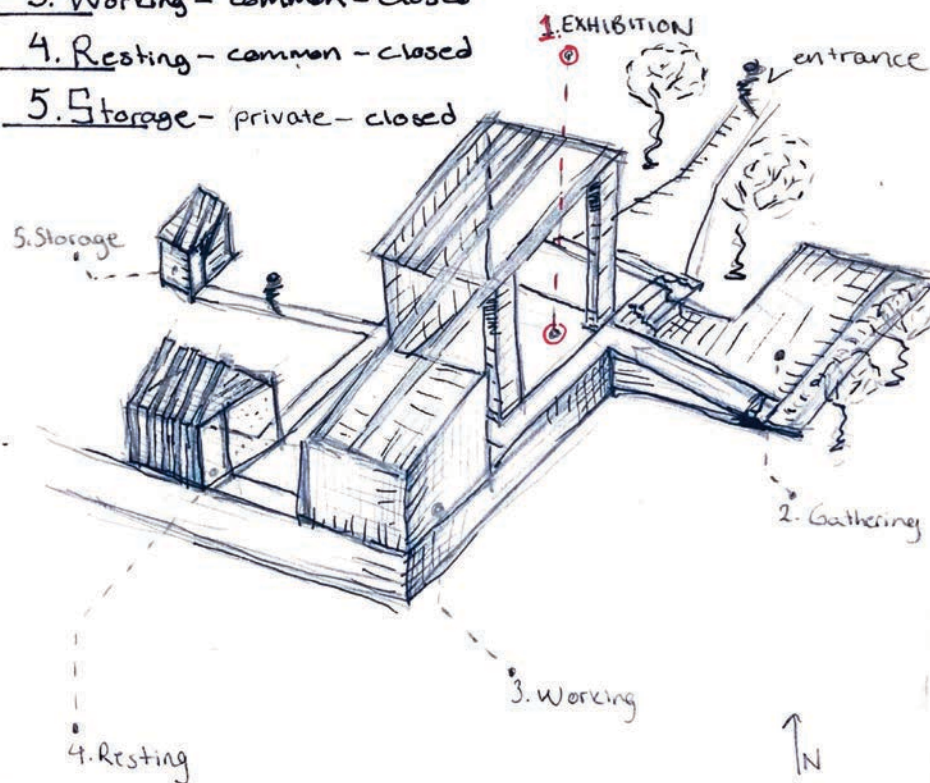 3. Working - common - closed
4. Resting - common - closed
5. Storage - private - closed
1. EXHIBITION
entrance
5. Storage
2. Gathering
3. Working
4. Resting
N